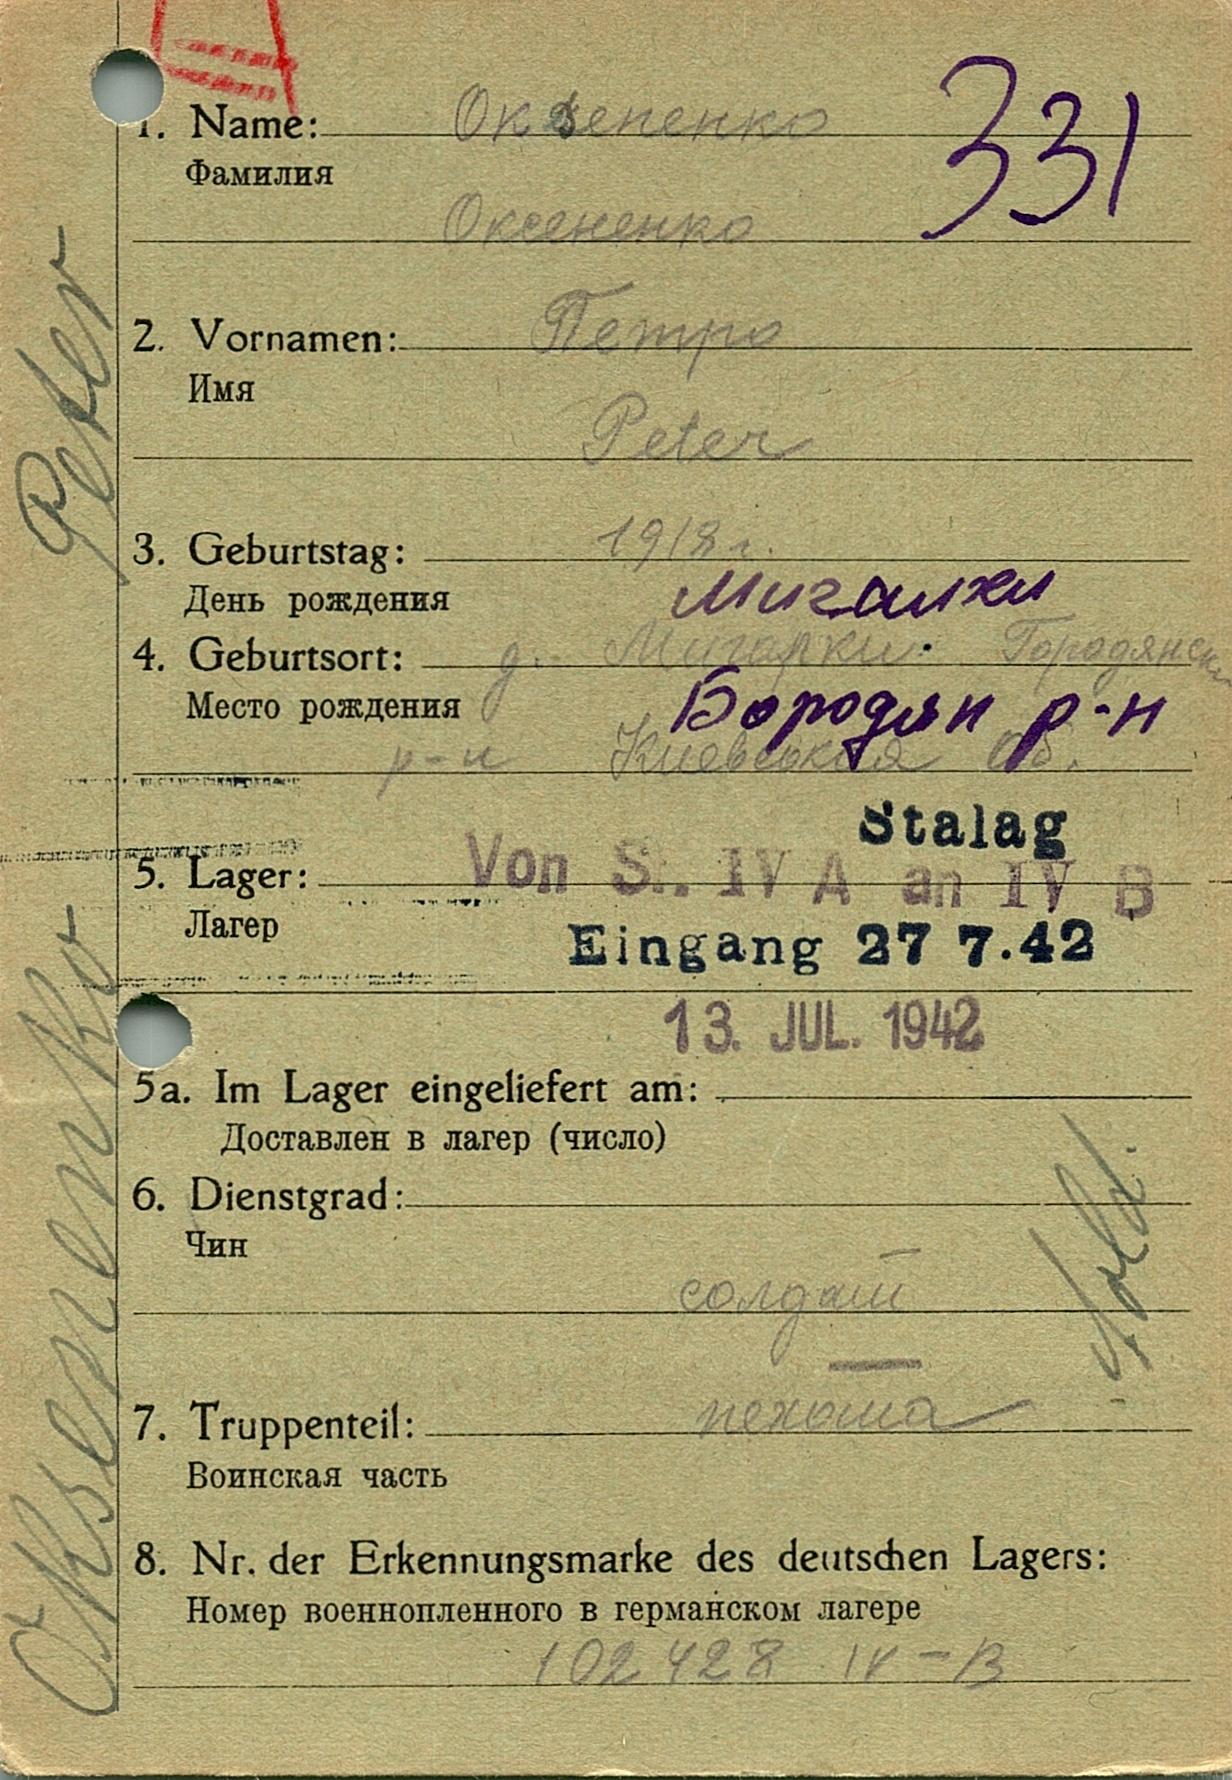 1. Name: Оксененко
331
Фамилия
Оксененко
2. Vornamen: Петро
Имя
Peter
3. Geburtstag: 1918 г.
День рождения
Мигалки
4. Geburtsort: д. Мигарки. Городянски
Место рождения
Бородян р-н
р-н Киевськая об.
Stalag
5. Lager: Von St. IV A an IV B
Лагер
Eingang 27 7.42
13. JUL. 1942
5a. Im Lager eingeliefert am:
Доставлен в лагер (число)
6. Dienstgrad:
Чин
солдат
Sold.
7. Truppenteil: пехота
Воинская часть
8. Nr. der Erkennungsmarke des deutschen Lagers:
Номер военнопленного в германском лагере
102428 IV-B
Oksenenko Peter